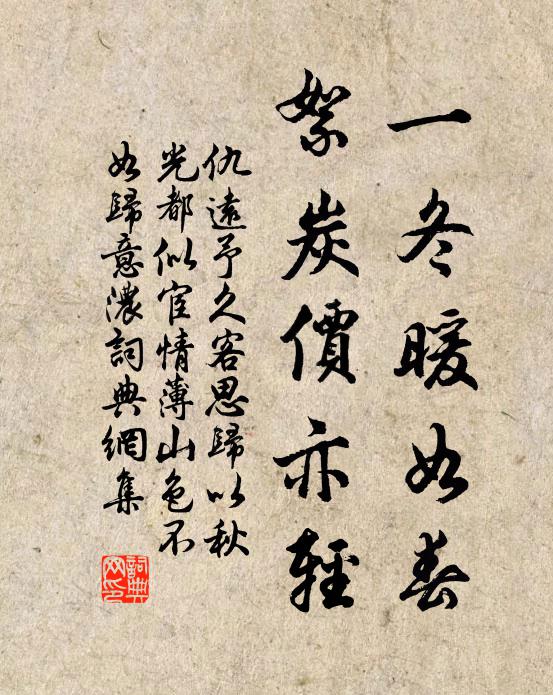 一冬暖如春
絮炭價亦輕
仇遠予久客思歸以秋
光都似宦情薄山色不
如歸意濃詞典網集
詞典网印